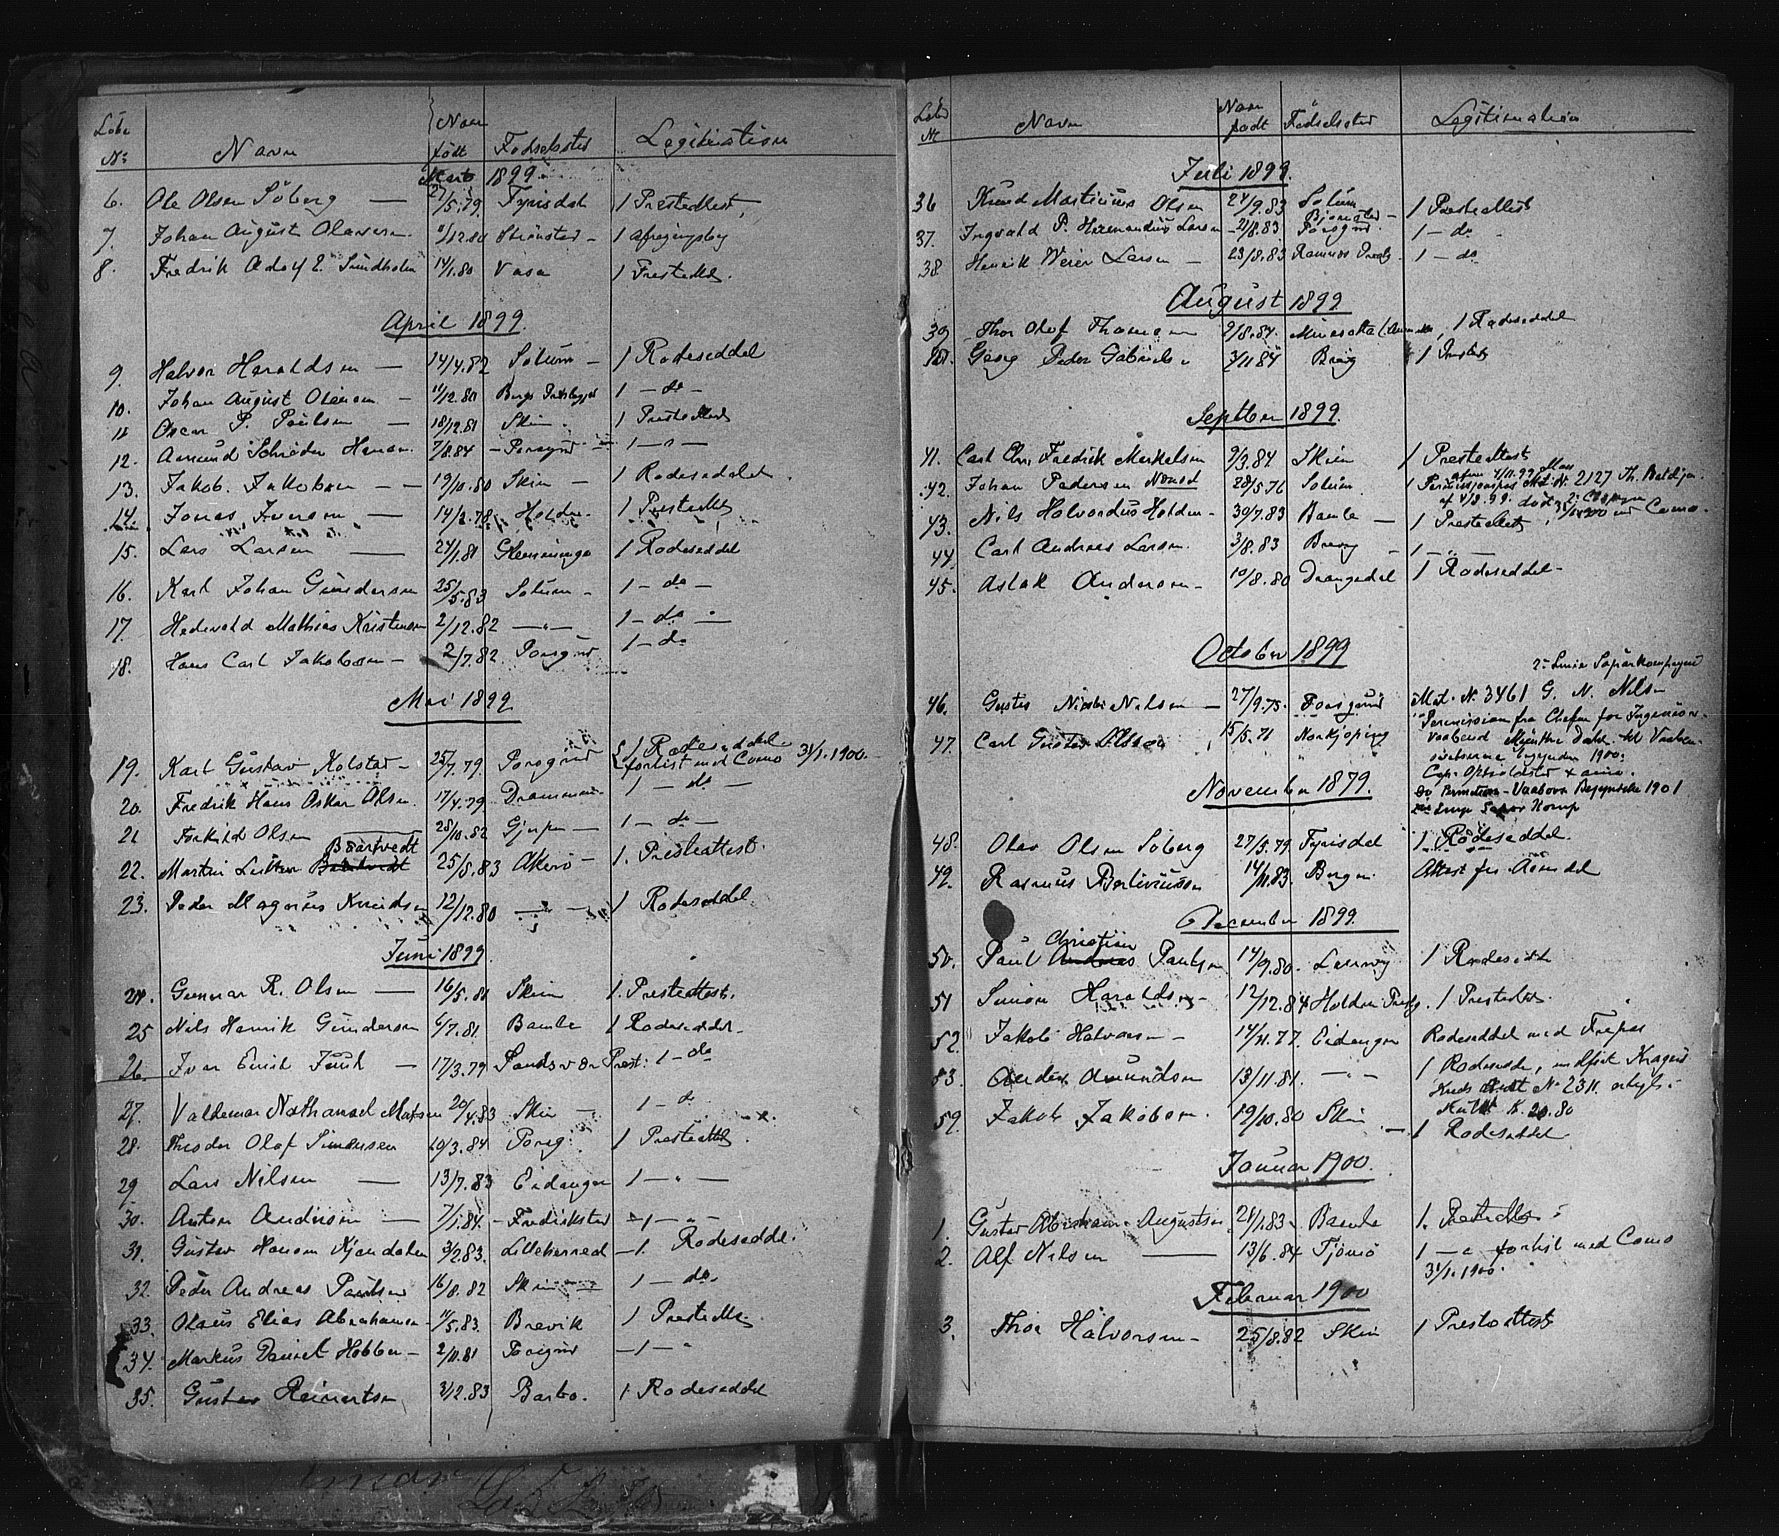 Löbe No Navn Naar født Fødselssted Legitimation
Marts 1899
6. Ole Olsen Söberg — 27/5.79. Fyrisdal 1 Presteattest,
7. Johan August Olavsen. 11/12.80 Strömstad - 1
8. Fredrik Adolf E. Sundholm 14/1.80 Vasa 1 Presteatt.
April 1899
9. Halvor Haraldsen — 14/4.82 Solum — 1 Rodeseddel
10. Johan August Olavsen — 11/12.80 Bergs 1 — do —
11 Oscar P. Paulsen — 18/12.81 Skien. 1 Presteattest
12. Amund Schröder Hansen. 7/10.84 — Porsgrund 1 — " —
13. Jakob. Jakobsen — — 19/10.80 Skien — 1 Rodeseddelel
14. Jonas Iversen — 14/2.78 Holden. 1 Presteattest
15. Lars Larsen — 24/1.81 Glemminge 1 Rodeseddel
16. Karl Johan Gundersen 25/5.83 Solum — 1 — do —
17. Hedevold Mathias Kristensen 2/12.82 — " — 1 — do —
18. Hans Carl Jakobsen — 2/7.82 Porsgrund 1 — do
Mai 1899
19. Karl Gustav Kolstad — 25/7.79 Porsgrund 1 Rodeseddel
forlist med Como 31/1.1900.
20. Fredrik Hans Oskar Olsen. 17/4.79 Drammen — 1 — do —
21 Torkild Olsen 28/10.82 Gjerpen — 1 — do —
Baartvedt
22. Martin Luther 25/5.83 Akerö — 1. Presteattest.
23. Peder Magnus Knudsen 12/12.80 — " — 1 Rodeseddel.
Juni 1899.
24. Gunnar R. Olsen — 16/5.81 Skien 1. Presteattest.
25 Nils Henrik Gundersen 6/7.81 Bamle 1 Rodeseddel.
26. Iver Emil Funk — 17/3.79 Sandsvær Prest: 1 — do
27. Valdemar Nathanael Matsen 20/4.83 Skien — 1 — do
28. Theodor Olaf Simensen 20/3.84 Porsg. 1 Presteattest.
29 Lars Nilsen — 13/7.83 Eidanger 1 — " —
30. Anton Andersen — 7/1.84. — Fredrikstad — 1 — " —
31. Gustav Hansen Kjendalen 3/2.83. Lilleherred — 1. Rodeseddel.
32. Peder Andreas Paulsen 16/8.82 Skien — 1 — do.
33. Olaus Elias Abrahamsen 11/5.83. Brevik 1 Presteatt.
34. Markus Daniel Hobben — 2/11.81 Porsgrund — 1 — "
35. Gustav Reinertsen 3/12.83 Barbo. 1. Rodeseddel
Löbe Nr Navn Naar født Fødselssted Legitimation
Juli 1899.
36 Knud Martinius Olsen 24/9.83 Solum 1 Presteattest
37. Ingvald P. Hermandius Larsen — 21/8.83 Porsgrund. 1 — do
38 Henrik Weier Larsen — 23/8.83 Ramnes Prestg. 1 — do
August 1899
39 Thor Olof Thomasen 2/8.84. Minesotta 1 Rodeseddel
Georg Peder Gabrielsen 3/11 84 Brevig 1 Presteatt
September 1899.
41. Carl Chr. Fredrik Merkelsen 9/3.84 Skien 1 Presteattest
42. Johan Pedersen 28/5.76 Solum. 1 Permissionspas Md. Nr. 2127 Th. Bataljon
af 4/8.99.
43. Nils Halvordus Holden — 30/7.83 Bamle — 1 Presteattest, 31/1.1900 med Como.
44. Carl Andreas Larsen. 3/8.83 Brevig — 1 — " —
45. Aslak Andersen — 10/8.80 Drangedal 1 Rodeseddel —
October 1899
2— Linie Sapörkompagni
46. Gustav Nilsen — 27/9.75. Porsgrund Mat. Nr. 3461 G. N. Nilsen
Permission fra Chefen for Ingeniör-
47. Carl Gustav 15/5.71 Norkjöping
1900.
November 1879.
48. Olav Olsen Söberg 27/5.79 Fyrisdal 1 Rodeseddel.
49. Rasmus Bertiniussen 14/11.83. Bergen. Attest fra Arendal
December 1899.
Christian
50. Paul Andreas Paulsen 14/9.80. Laurvig 1 Rodeseddel
51 Simon Haraldsen — 12/12.84 Holden Prestg. 1 Presteatt.
52. Jakob Halvorsen — 14/11.77. Eidanger Rodeseddel med Frepas
53. Anders Amundsen 13/11.81. — " — 1 Rodesedde, indført Kragerö
59. Jakob Jakobsen. 19/10.80 Skien — 1 Rodeseddel
Januar 1900.
1. Gustav Abraham Augustsen 24/1.83 — Bamle 1. Presteattest
2. Alf Nilsen — 13/6.84 Tjömö 1 — " forlist med Como
31/1.1900.
Februar 1900
3. Thor Halvorsen — 25/8.82 Skien 1 Presteattest